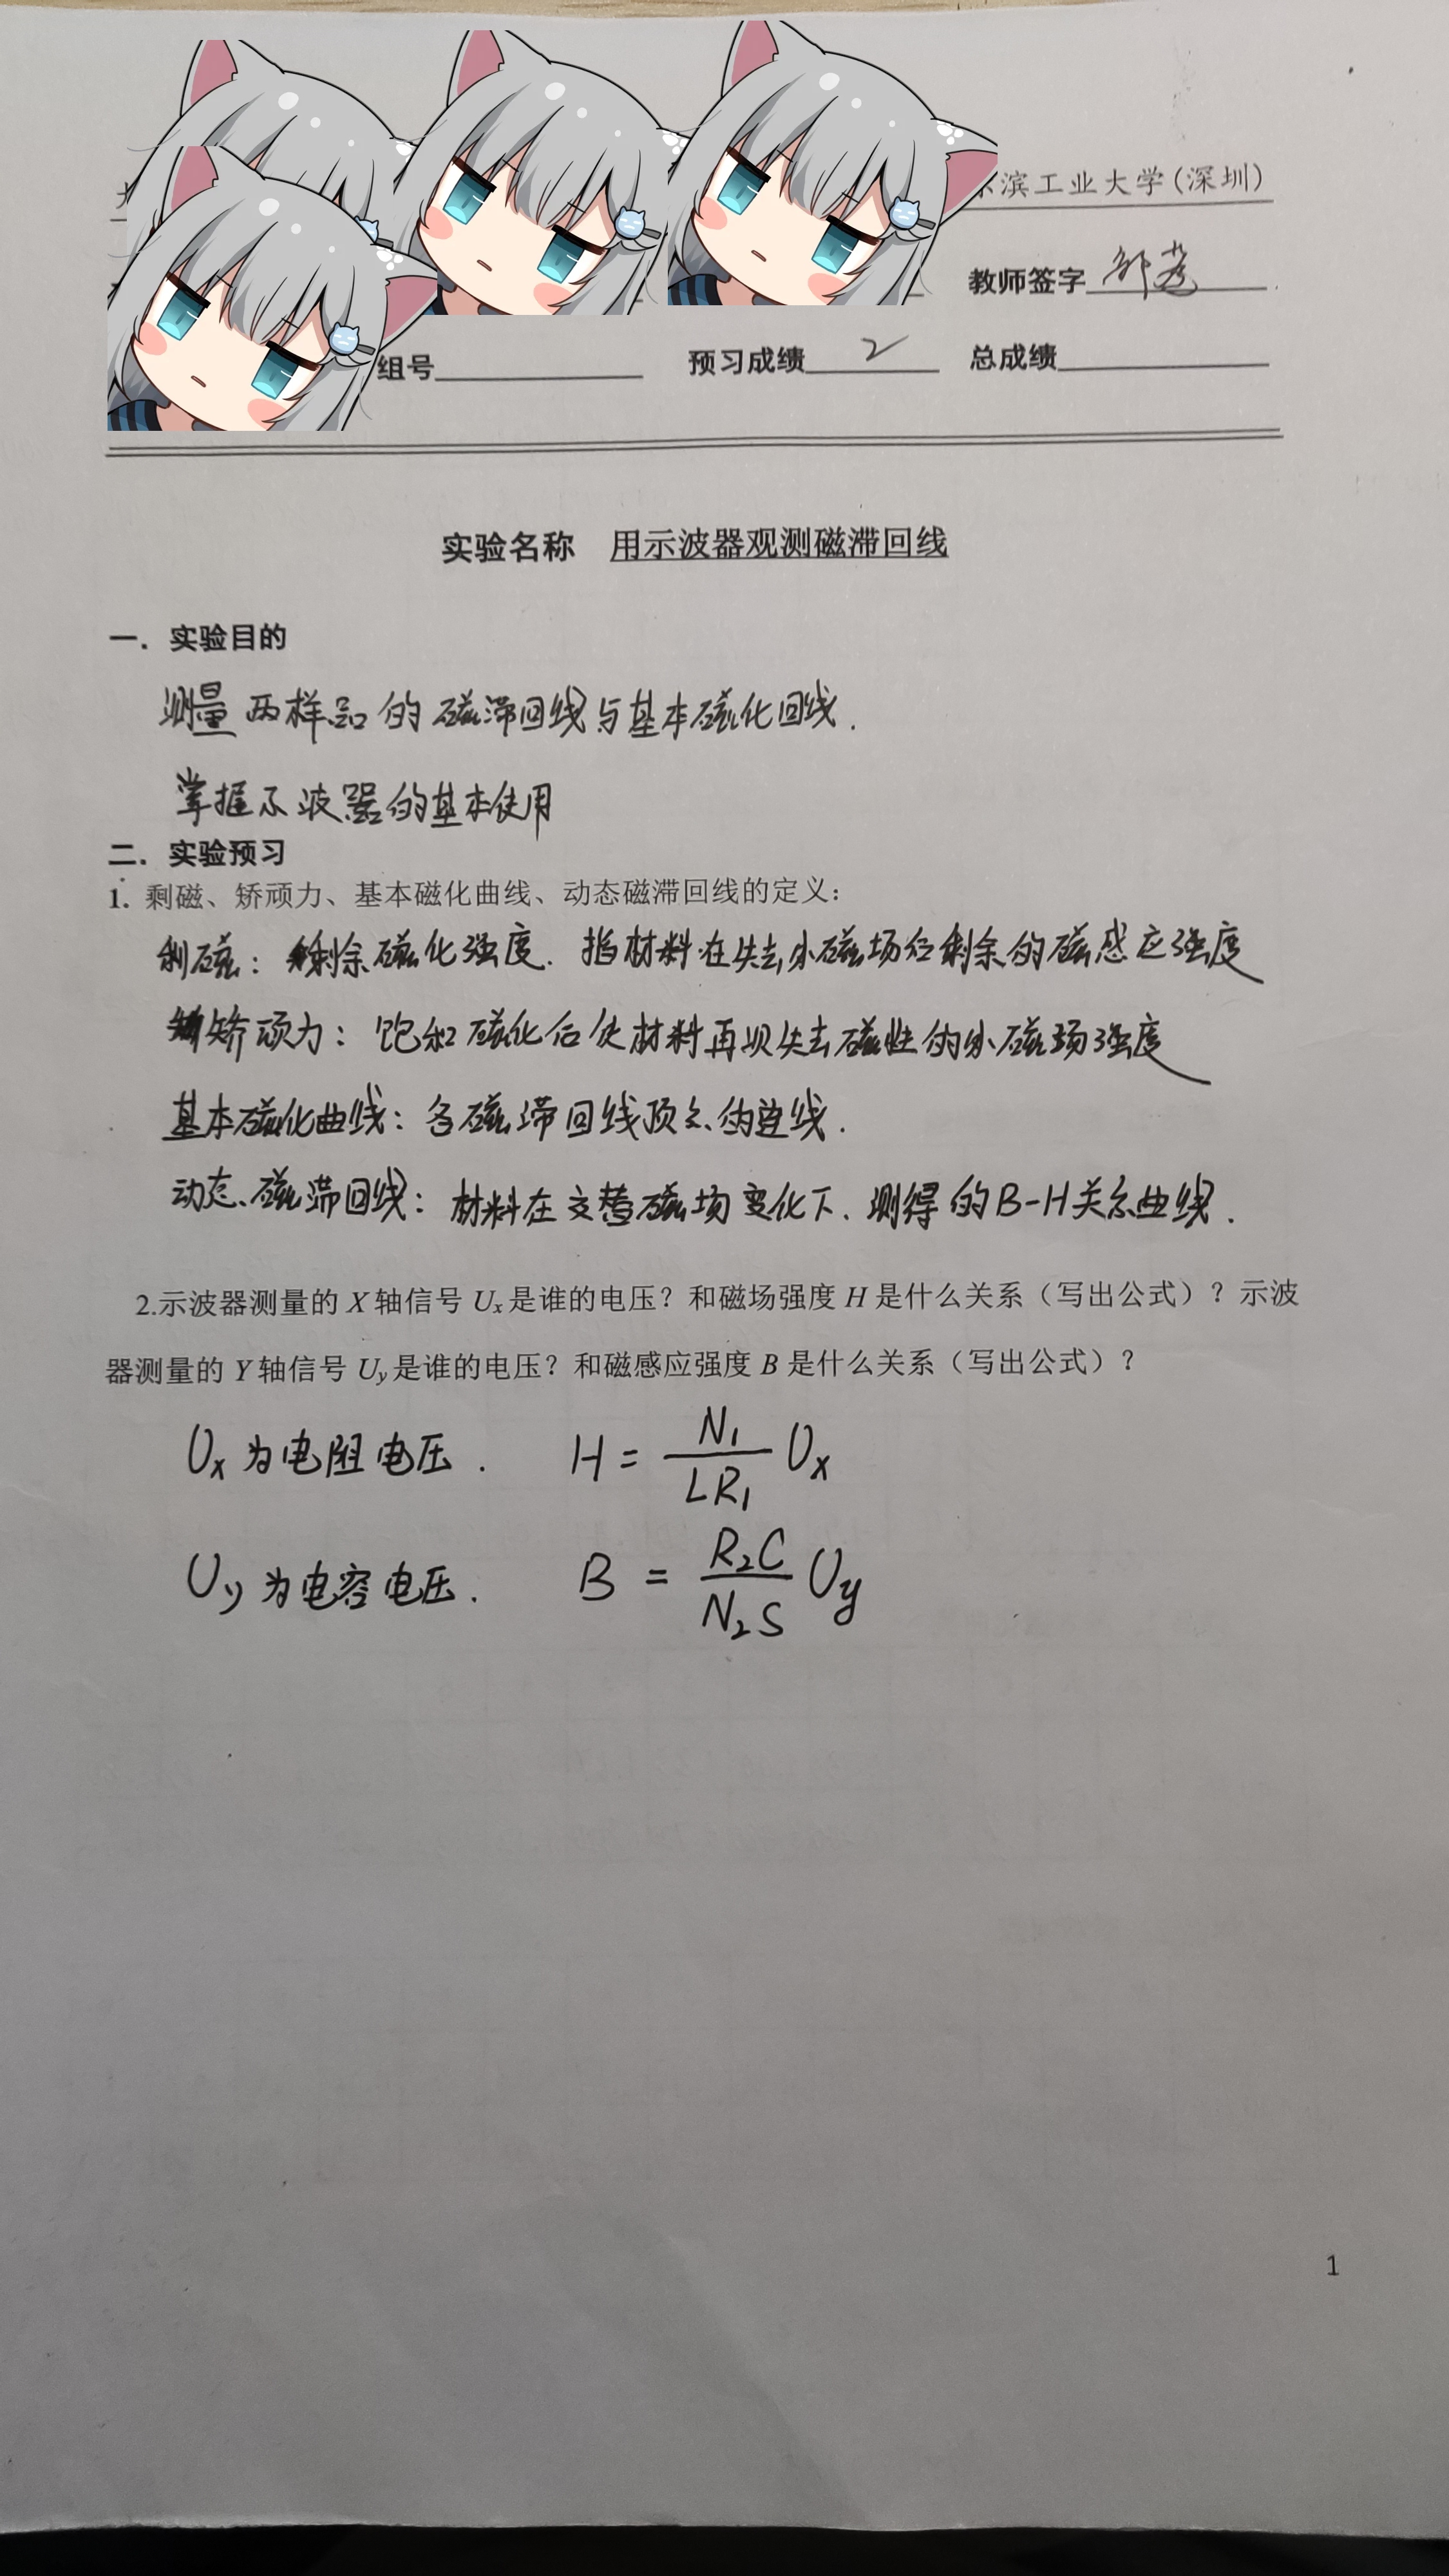 尔滨工业大学(深圳)
教师签字
组号 预习成绩 2 总成绩
实验名称 用示波器观测磁滞回线
一．实验目的
测量两样品的磁滞回线与基本磁化回线.
掌握示波器的基本使用
二．实验预习
1. 剩磁、矫顽力、基本磁化曲线、动态磁滞回线的定义：
剩磁：剩余磁化强度. 指材料在失去外磁场后剩余的磁感应强度
矫顽力：饱和磁化后使材料再次失去磁性的外磁场强度
基本磁化曲线：各磁滞回线顶点的连线.
动态磁滞回线：材料在交替磁场变化下.测得的B-H关系曲线.
2.示波器测量的 X 轴信号 Ux 是谁的电压？和磁场强度 H 是什么关系（写出公式）？示波
器测量的 Y 轴信号 Uy 是谁的电压？和磁感应强度 B 是什么关系（写出公式）？
Ux 为电阻电压. H = N₁/(LR₁) Ux
Uy 为电容电压. B = R₂C/(N₂S) Uy
1